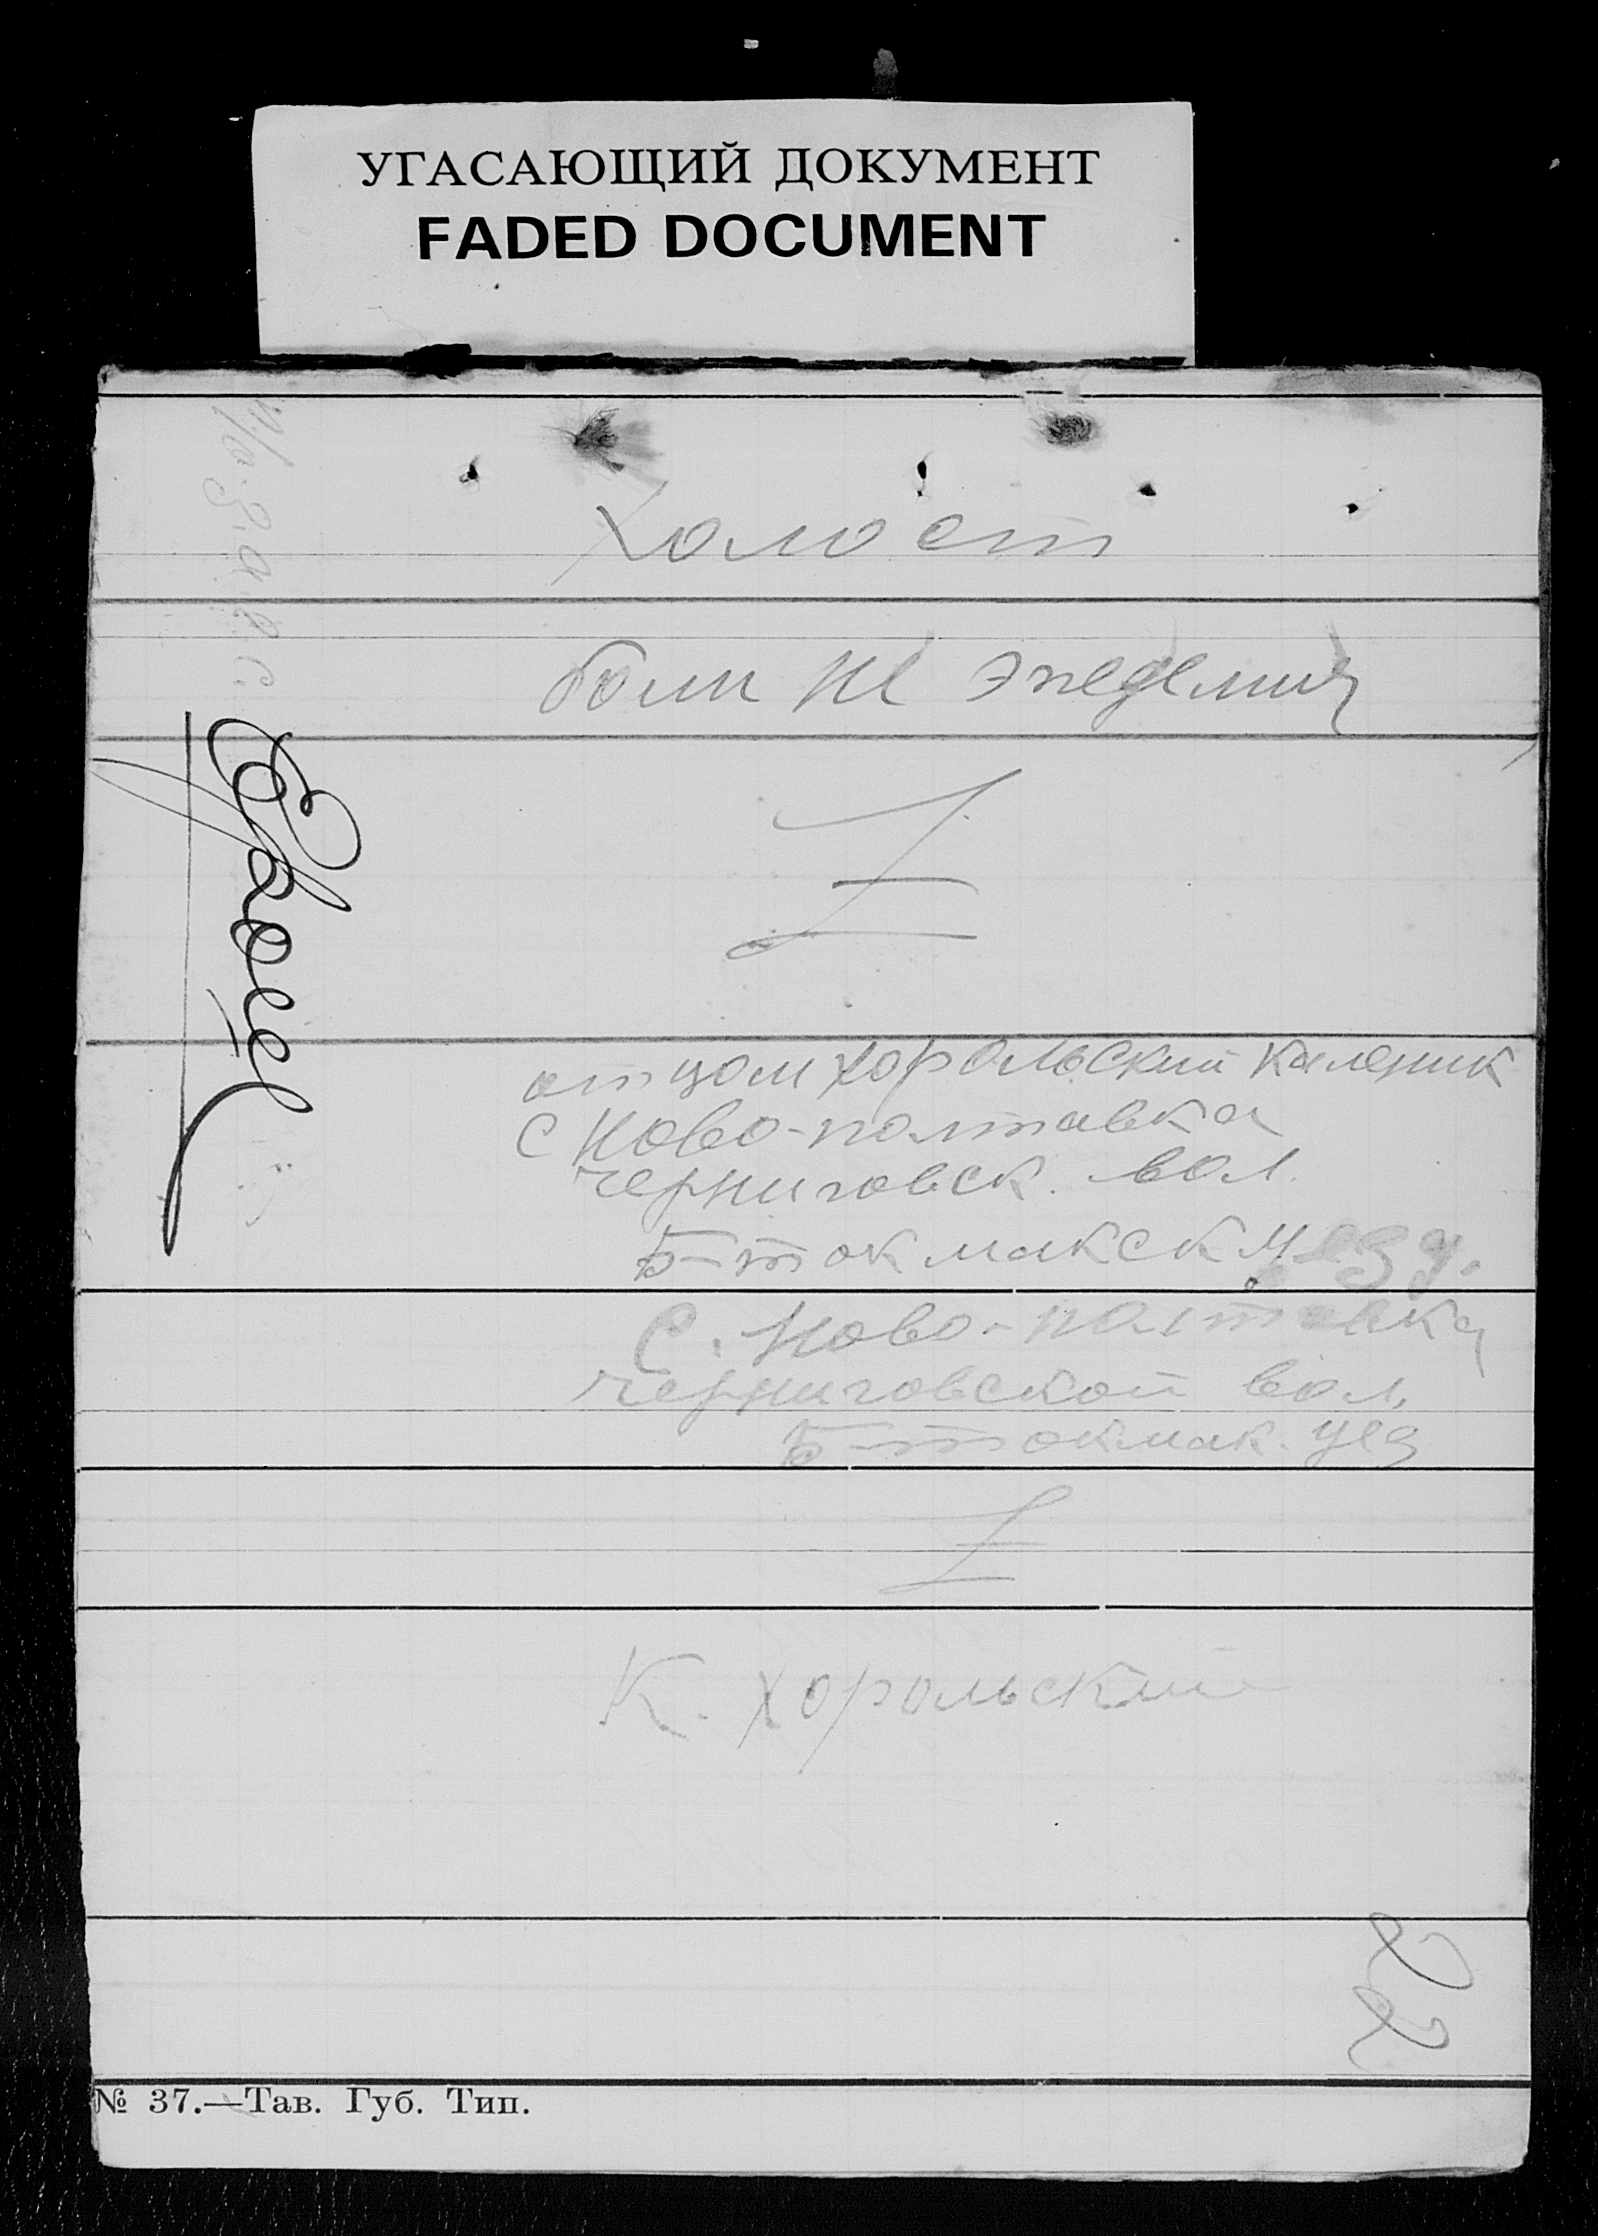 УГАСАЮЩИЙ ДОКУМЕНТ
FADED DOCUMENT
холост
отцом хорольский каленик
с Ново-полтавка
черниговск. вол.
Б-токмакск уезд.
с. Ново-полтавка
черниговской вол.
Б-токмак. уез
К. хорольский
22
№ 37.—Тав. Губ. Тип.